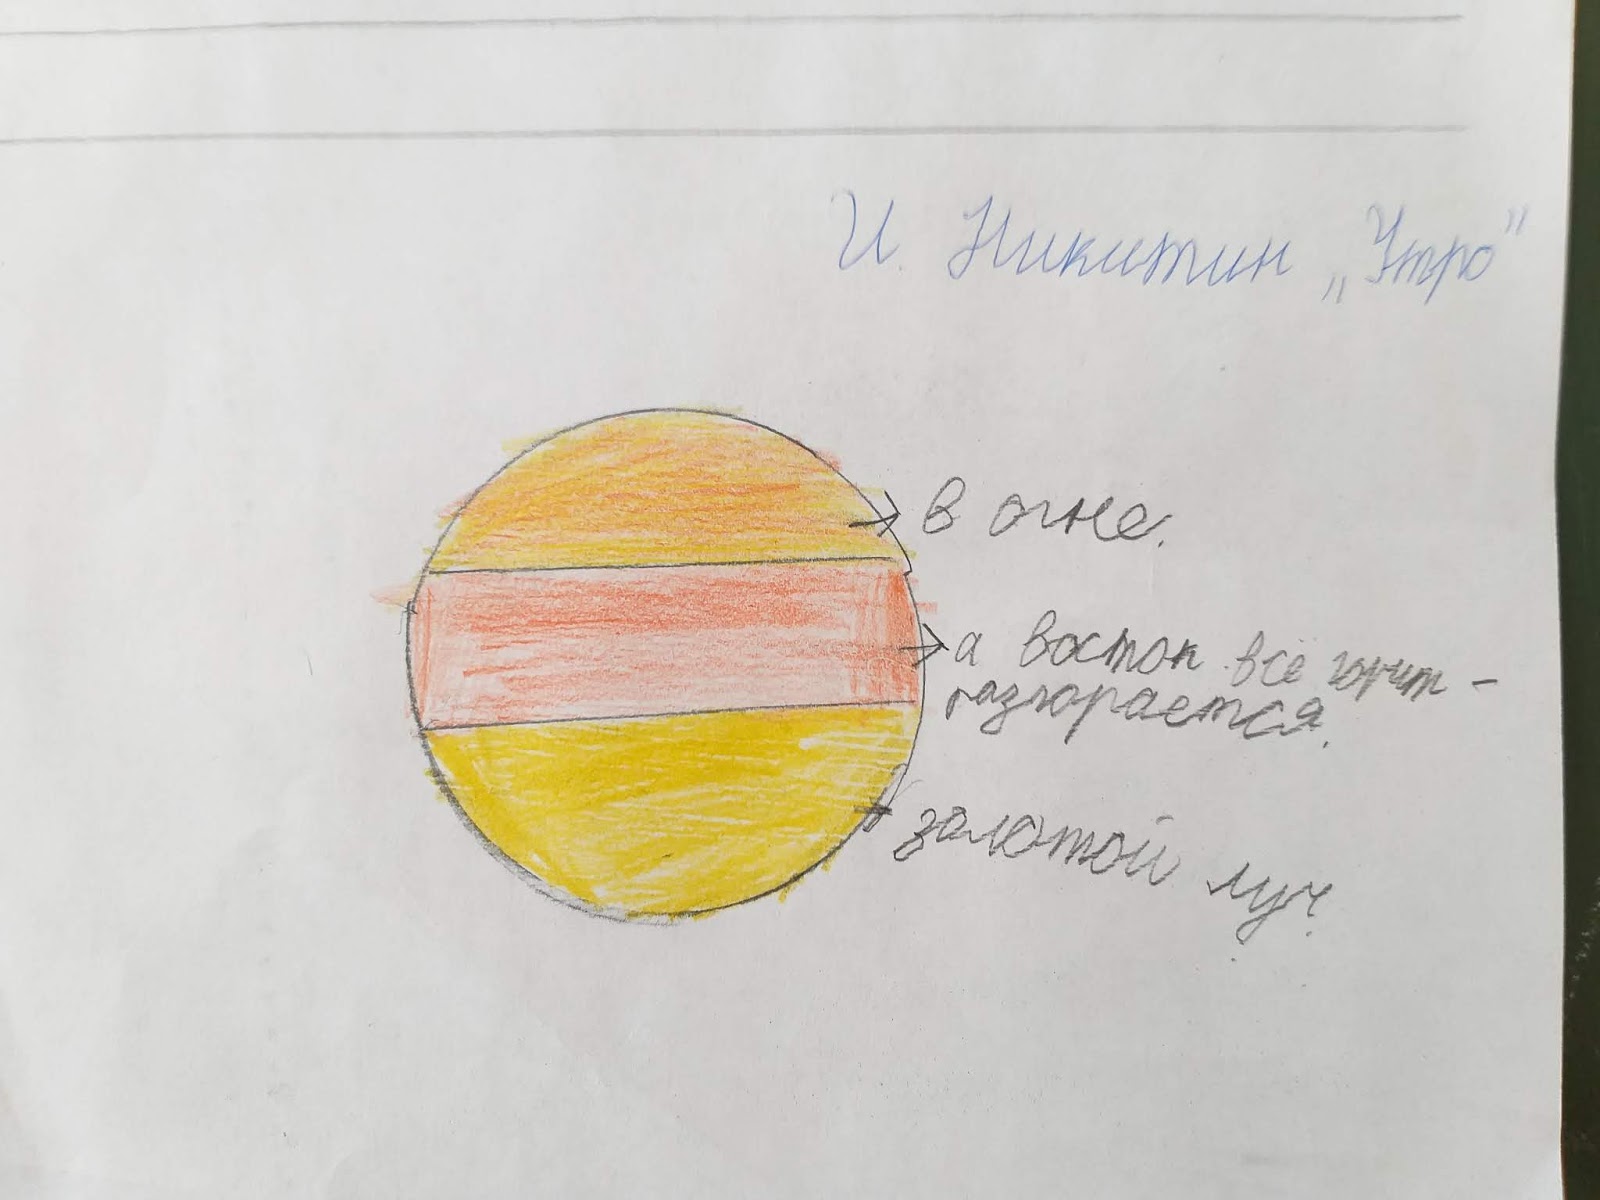 И. Никитин „Утро"
в огне.
а восток всё горит -
разгорается.
золотой луч.